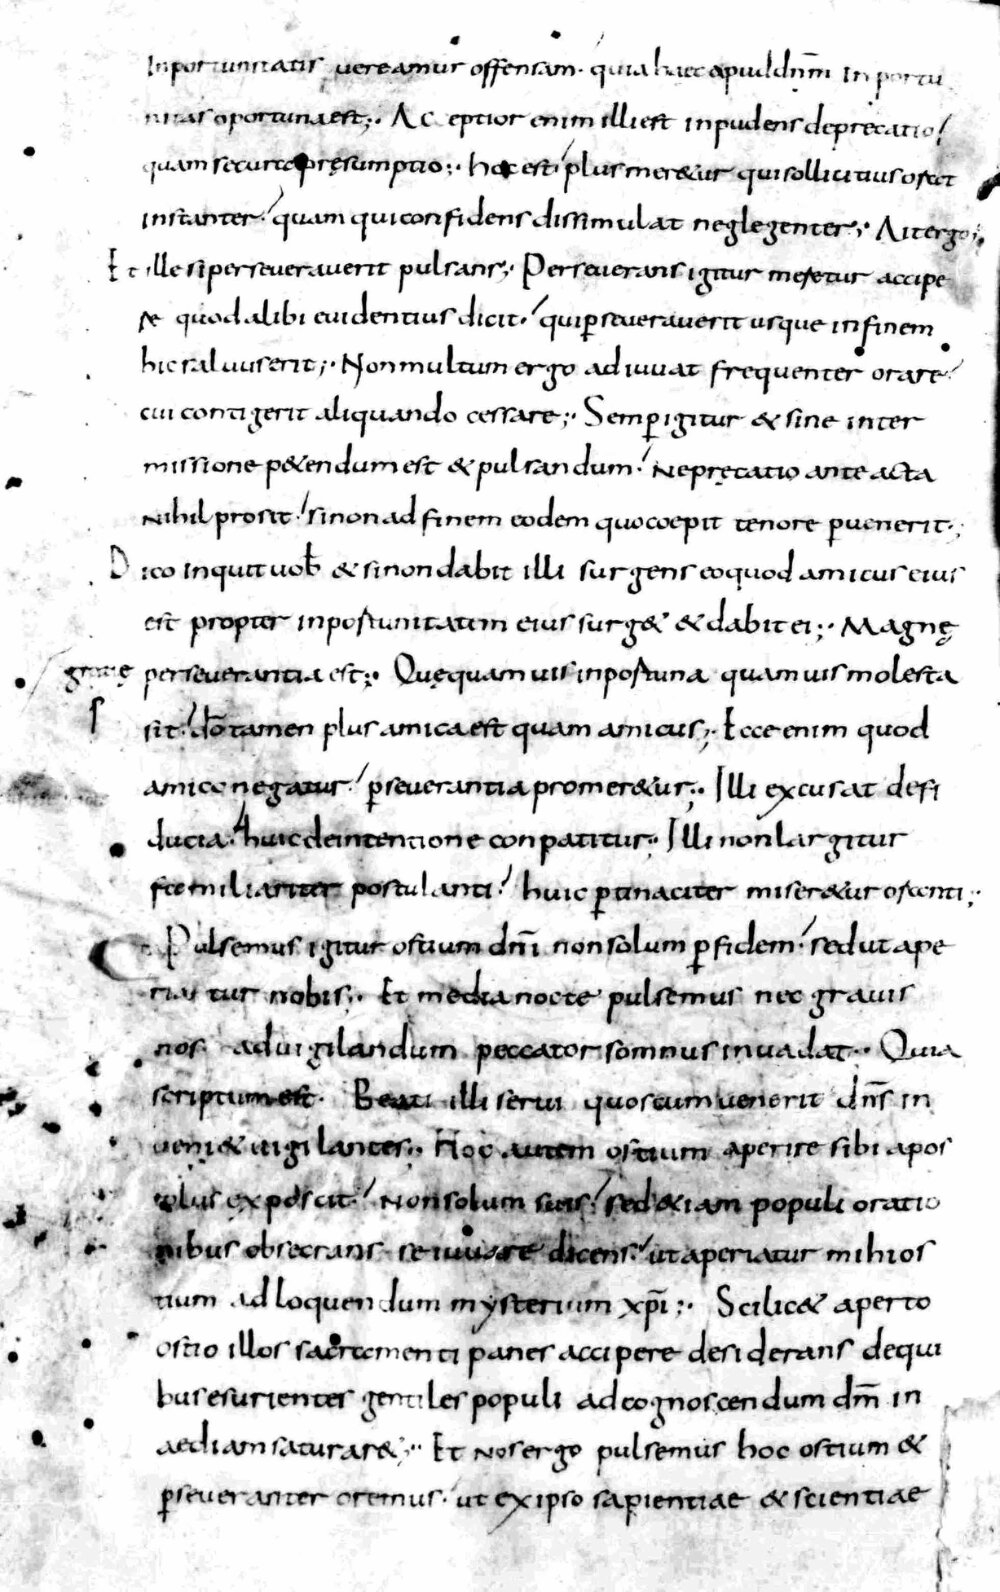 Inportunitatis vereamur offensam· quia haec apud dnm̄ inportu
nitas oportuna est;· Acceptior enim illi est inpudens deprecatio
quam secura presumptio;· hoc est plus mer&ur qui sollicitius ostat
instanter quam qui confidens dissimulat neglegenter;· Ait ergo;
Et ille si perseveraverit pulsans;· Perseverans igitur meretur accipe
re quod alibi evidentius dicit· qui p̱severaverit usque in finem
hic salvus erit;· Non multum ergo adiuvat frequenter orare
cui contigerit aliquando cessare;· Semp̱ igitur & sine inter
missione p&endum est & pulsandum· Ne pręcatio ante acta
Nihil prosit· si non ad finem eodem quo coepit tenore p̱venerit·;
Dico inquit vob̄ & si non dabit illi surgens eo quod amicus eius
est propter inportunitatem eius surg& & dabit ei;· Magnę
gratię perseverantia est;· Quę quamvis inportuna quamvis molesta
sit· dō tamen plus amica est quam amicus;· Ecce enim quod
amico negatur p̱severantia promer&ur;· Illi excusat de fi
ducia· huic de intentione conpatitur· Illi non largitur
familiariter postulanti huic p̱tinaciter miser&ur ostanti;·
Pulsemus igitur ostium dnī non solum p̱ fidem· sed ut ape
riatur nobis;· Et media nocte pulsemus nec gravis
nos ad vigilandum peccator somnus invadat·· Quia
scriptum est· Beati illi servi quos cum venerit dn̄s in
veni& vigilantes;· Hoc autem ostium aperire sibi apos
tolus exposcit· Non solum suis sed &iam populi oratio
nibus obsecrans se iuvare dicens· ut aperiatur mihi os
tium ad loquendum mysterium xpī;· Scilic& aperto
ostio illos sacramenti panes accipere desiderans de qui
bus esurientes gentiles populi ad cognoscendum dm̄ in
aediam saturar&;· Et nos ergo pulsemus hoc ostium &
p̱severanter oremus· ut ex ipso sapientiae & scientiae